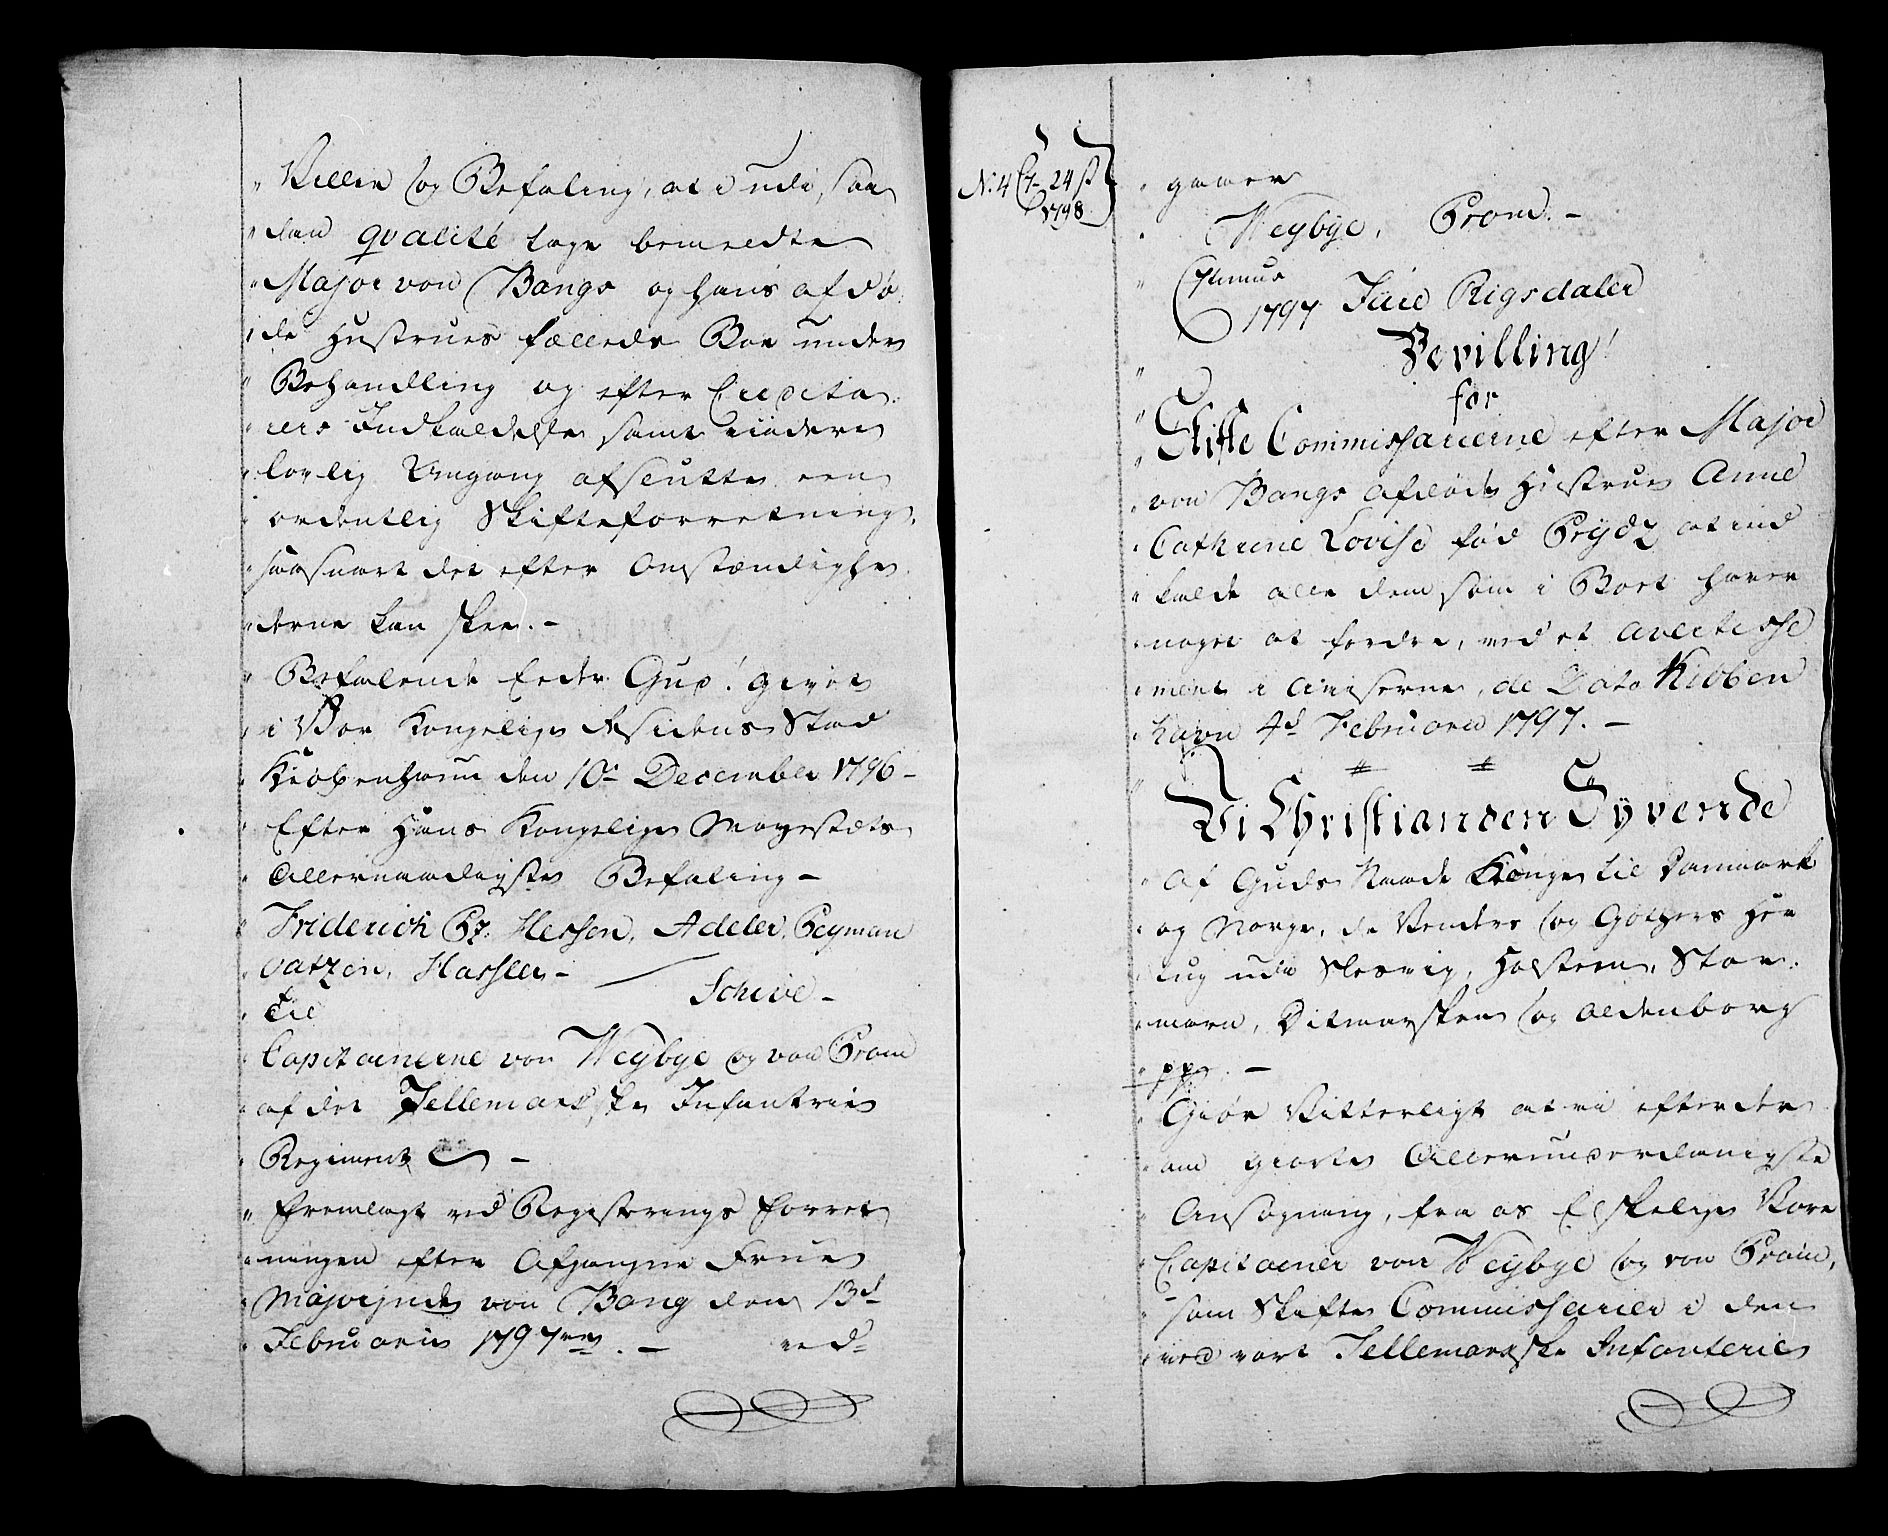 " Villie og Befaling, at i udi saa
" dan qvalité tage bemeldte
" Major von Bangs og hans afdø
" de Hustrues fælleds Boe under
" Behandling og efter Credito
" rers Indkaldelse samt videre
" lovlig Omgang afslutte een
" ordentlig Skifteforretning,
" saasnart det efter Omstændighe
" derne kan skee. -
" Befalende Eder Gud! givet
" i Vor Kongelige Residens Stad
" Kiøbenhavn den 10de December 1796 -
" Efter Hans Kongelige Mayestæts
" Allernaadigste Befaling -
" Friderich Pz. Hessen, Adeler, Peyman
" Hassler -
Schive -
" Til
" Capitainerne von Weybye og von Prom
" af det Tellemarkske Infanterie
" Regiment -
" Fremlagt ved Registerings Forret
" ningen efter Afgangne Frue
" Majorinde von Bang den 13d
" Februarii 1797 -
ved-
N: 4 24 s
1798
" gaaer
" Weybye, Prom. -
" 1797 Tiie Rigsdaler
Bevilling!
for
" Skifte Commissairerne efter Major
" von Bangs Afdøde Hustrue Anne
" Cathrine Lovise fød Prydz at ind
" kalde alle dem som i Boet haver
" noget at fordre, ved et avertisse
" ment i Aviserne, de Dato Kiøben
" havn 4d Februarii 1797. -
" Vi Christian den Syvende
" Af Guds Naade Konge til Danmark
" og Norge, de Venders og Gothers Her
" tug udi Slesvig, Holsteen, Stor
" marn, Ditmarsken og Oldenborg
" pp. -
" Giøre Vitterligt at vi efter den
" om giorte Allerunderdanigste
" Ansøgning, fra os Elskelige Vore
" Capitainer von Weybye og von Prom,
" som Skifte Commissairer i den
" ved vort Tellemarkske Infanterie